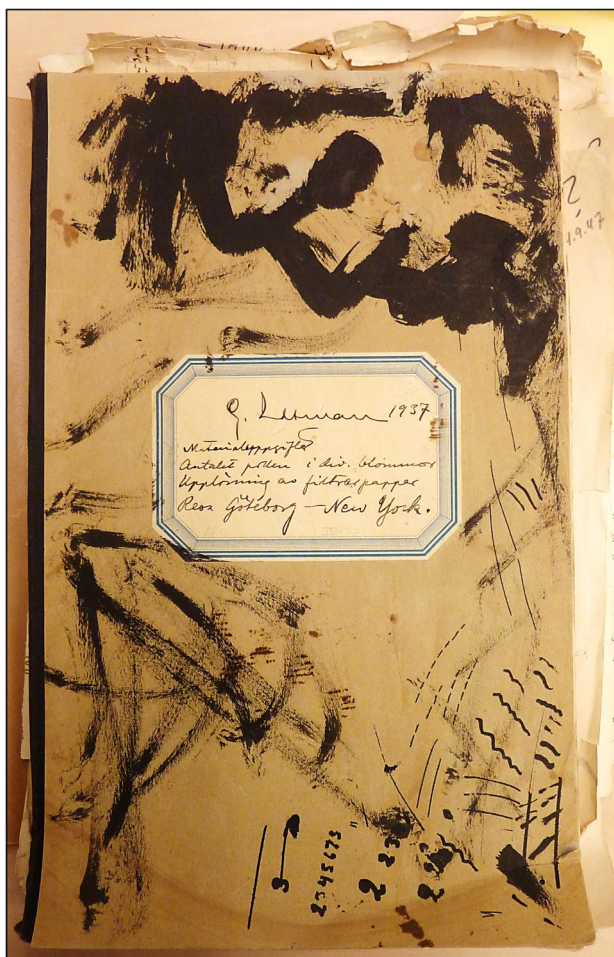 G. Erdtman 1937
Materialuppgifter
Antalet pollen i div. blommor
Upplösning av filtrerpapper
Resa Göteborg – New York.
1.9.47
2345675"
2 23